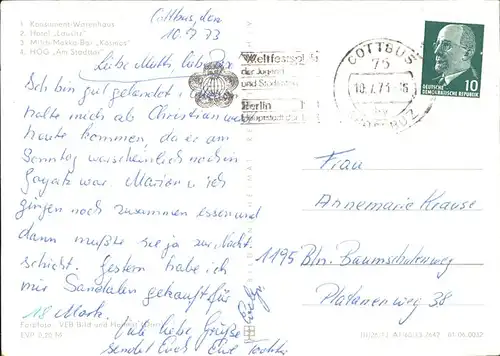 1 Konsument-Warenhaus
2 Hotel „Lausitz"
3 Milch-Mokka-Bar „Kosmos"
4 HOG „Am Stadttor"
Cottbus, den
10.7.73
Liebe Mutti, lieber
Ich bin gut gelandet
holte mich ab. Christian
heute kommen, da er am
Sonntag warscheinlich noch in
war. Marion u. ich
gingen noch zusammen essen und
dann mußte sie ja zur Nacht-
schicht. Gestern habe ich
mir Sandalen gekauft für
18 Mark.
Viele liebe Grüße
sendet Euch Eure Tochter
Evelyn
Weltfestspiele
der Jugend
und Studenten
Berlin
Hauptstadt der
COTTBUS
75
10.7.73
DEUTSCHE
DEMOKRATISCHE REPUBLIK
10
Frau
Annemarie Krause
1195 Bln. Baumschulenweg
Platanenweg 38
Farbfoto: VEB Bild und Heimat
EVP 0,20 M
01-06.0032